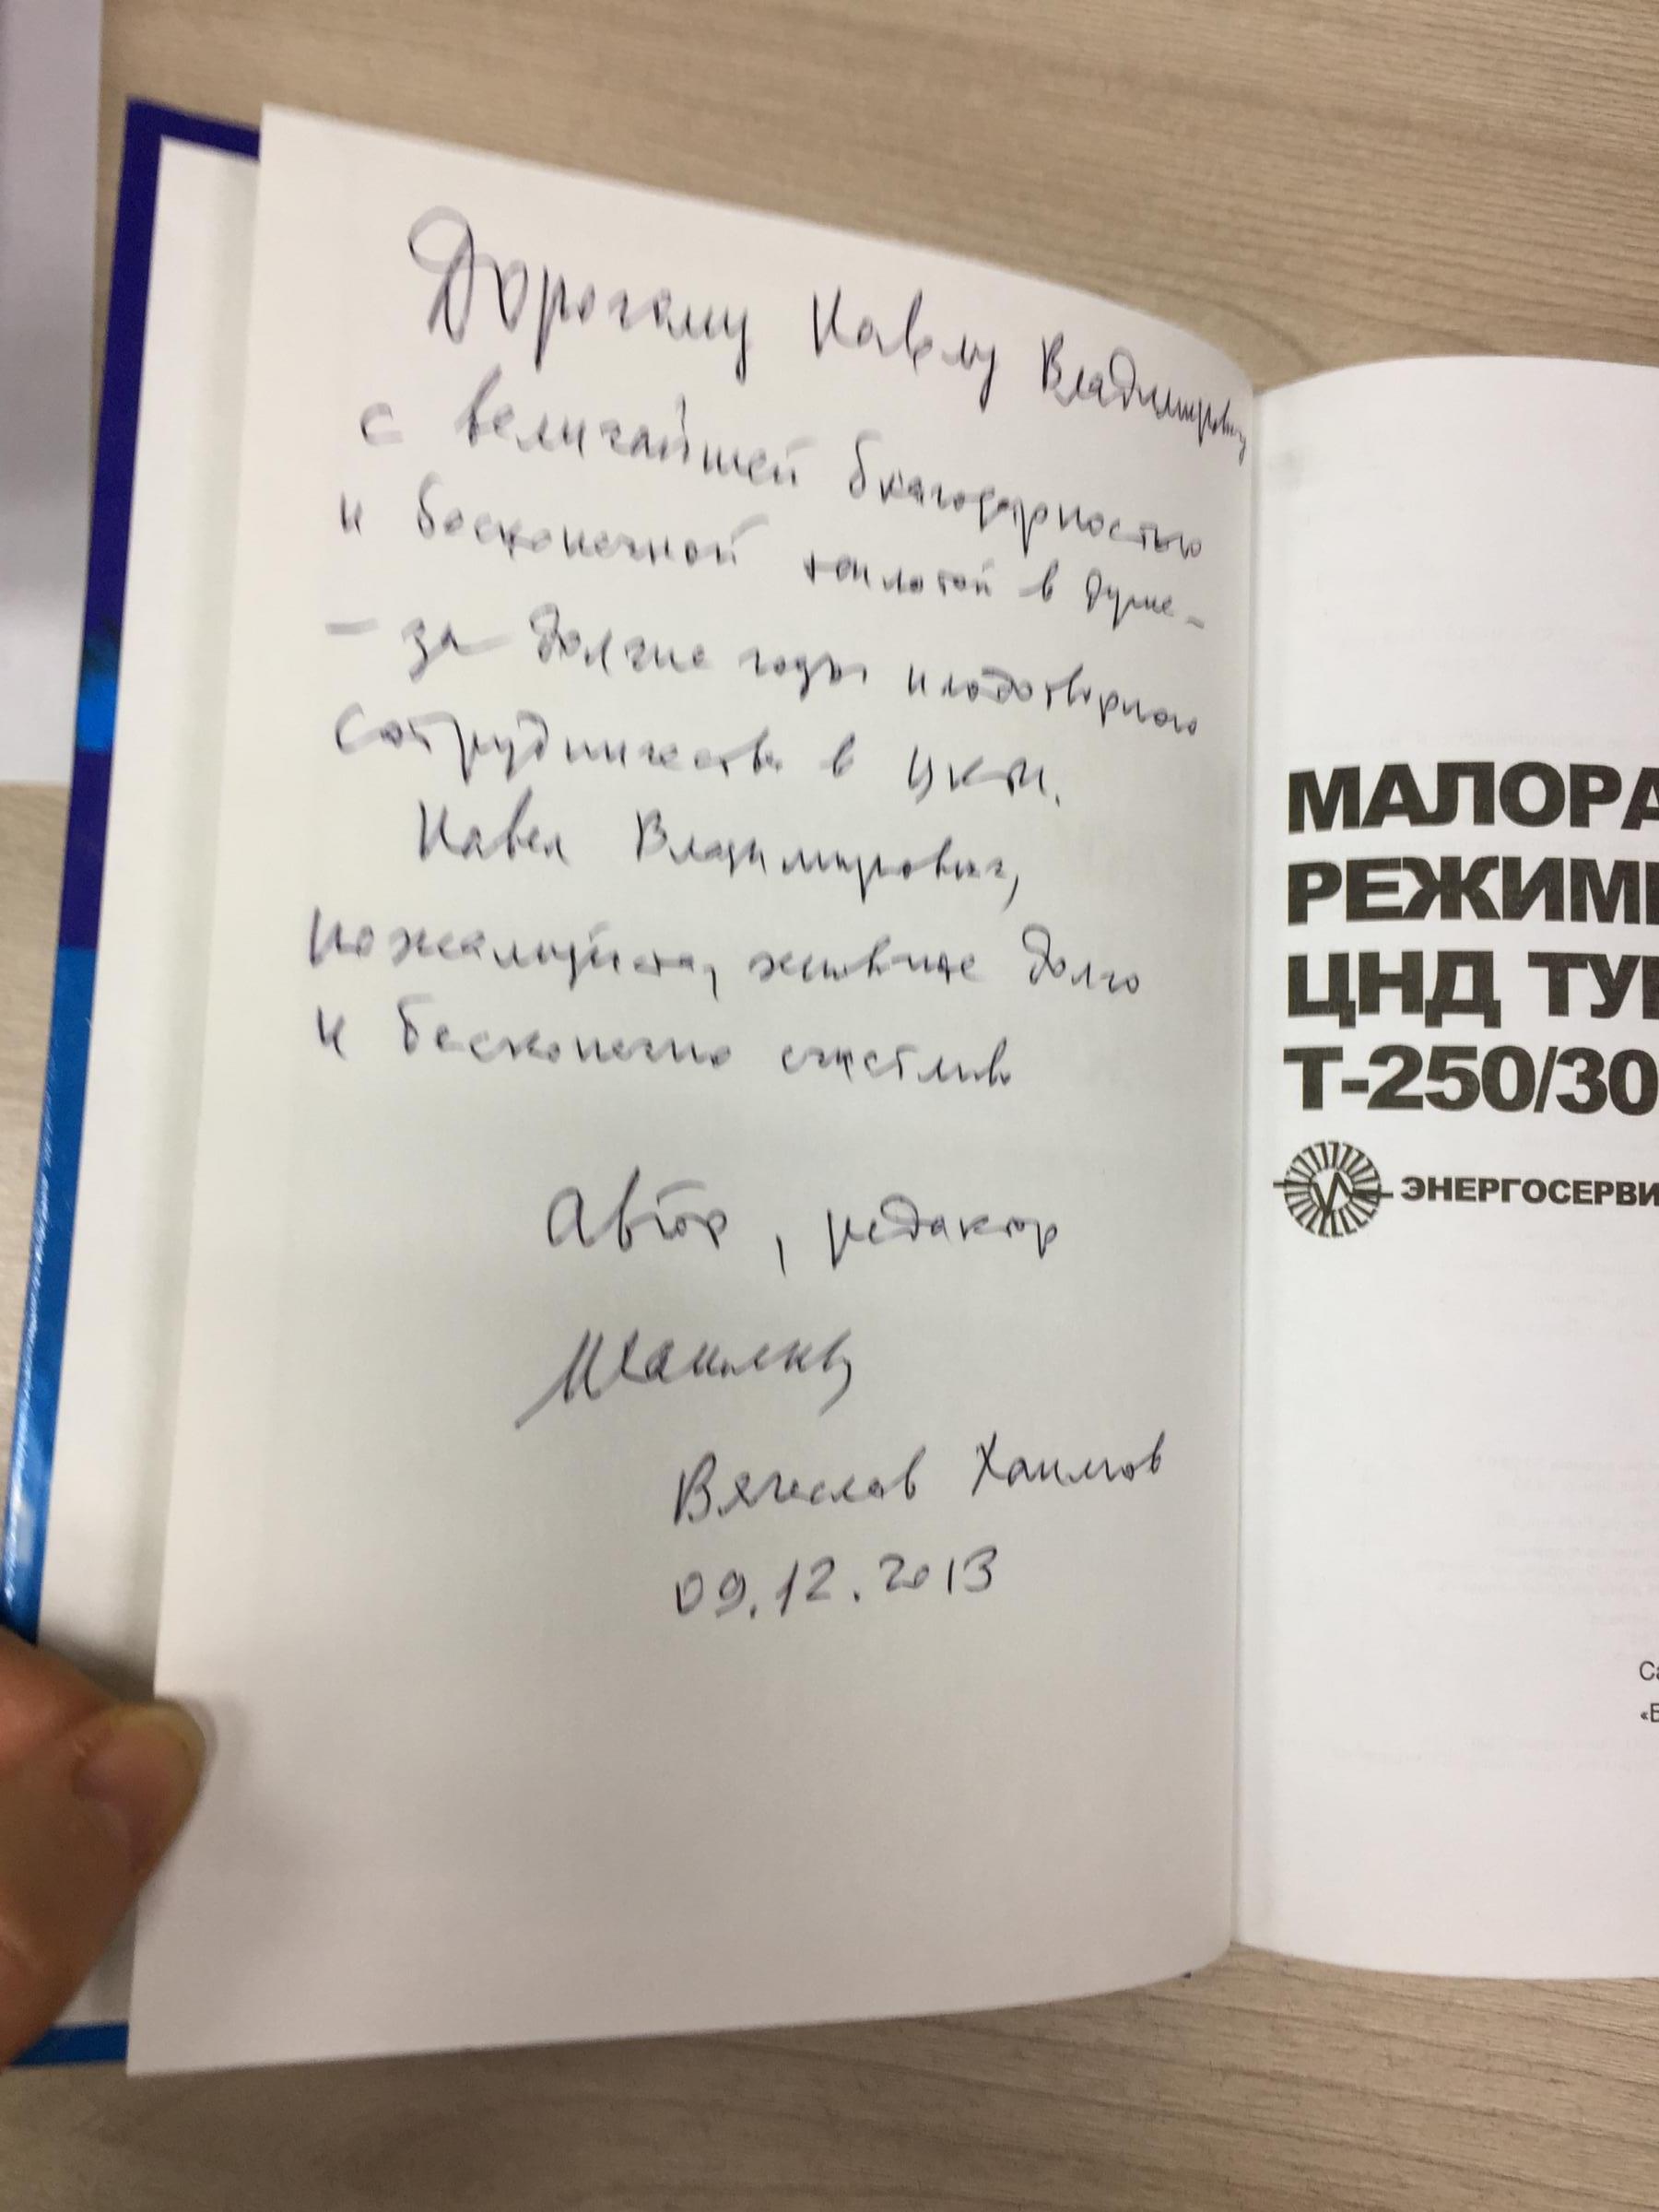 Дорогому Павлу Владимировичу
с величайшей благодарностью
и бесконечной теплотой в душе –
– за долгие годы плодотворного
сотрудничества в ЦКТИ.
Павел Владимирович,
пожалуйста, живите долго
и бесконечно счастливо
Автор, редактор
Вячеслав Хаимов
09.12.2013
МАЛОРА
РЕЖИМЫ
ЦНД ТУ
Т-250/30
ЭНЕРГОСЕРВИ
Са
«В